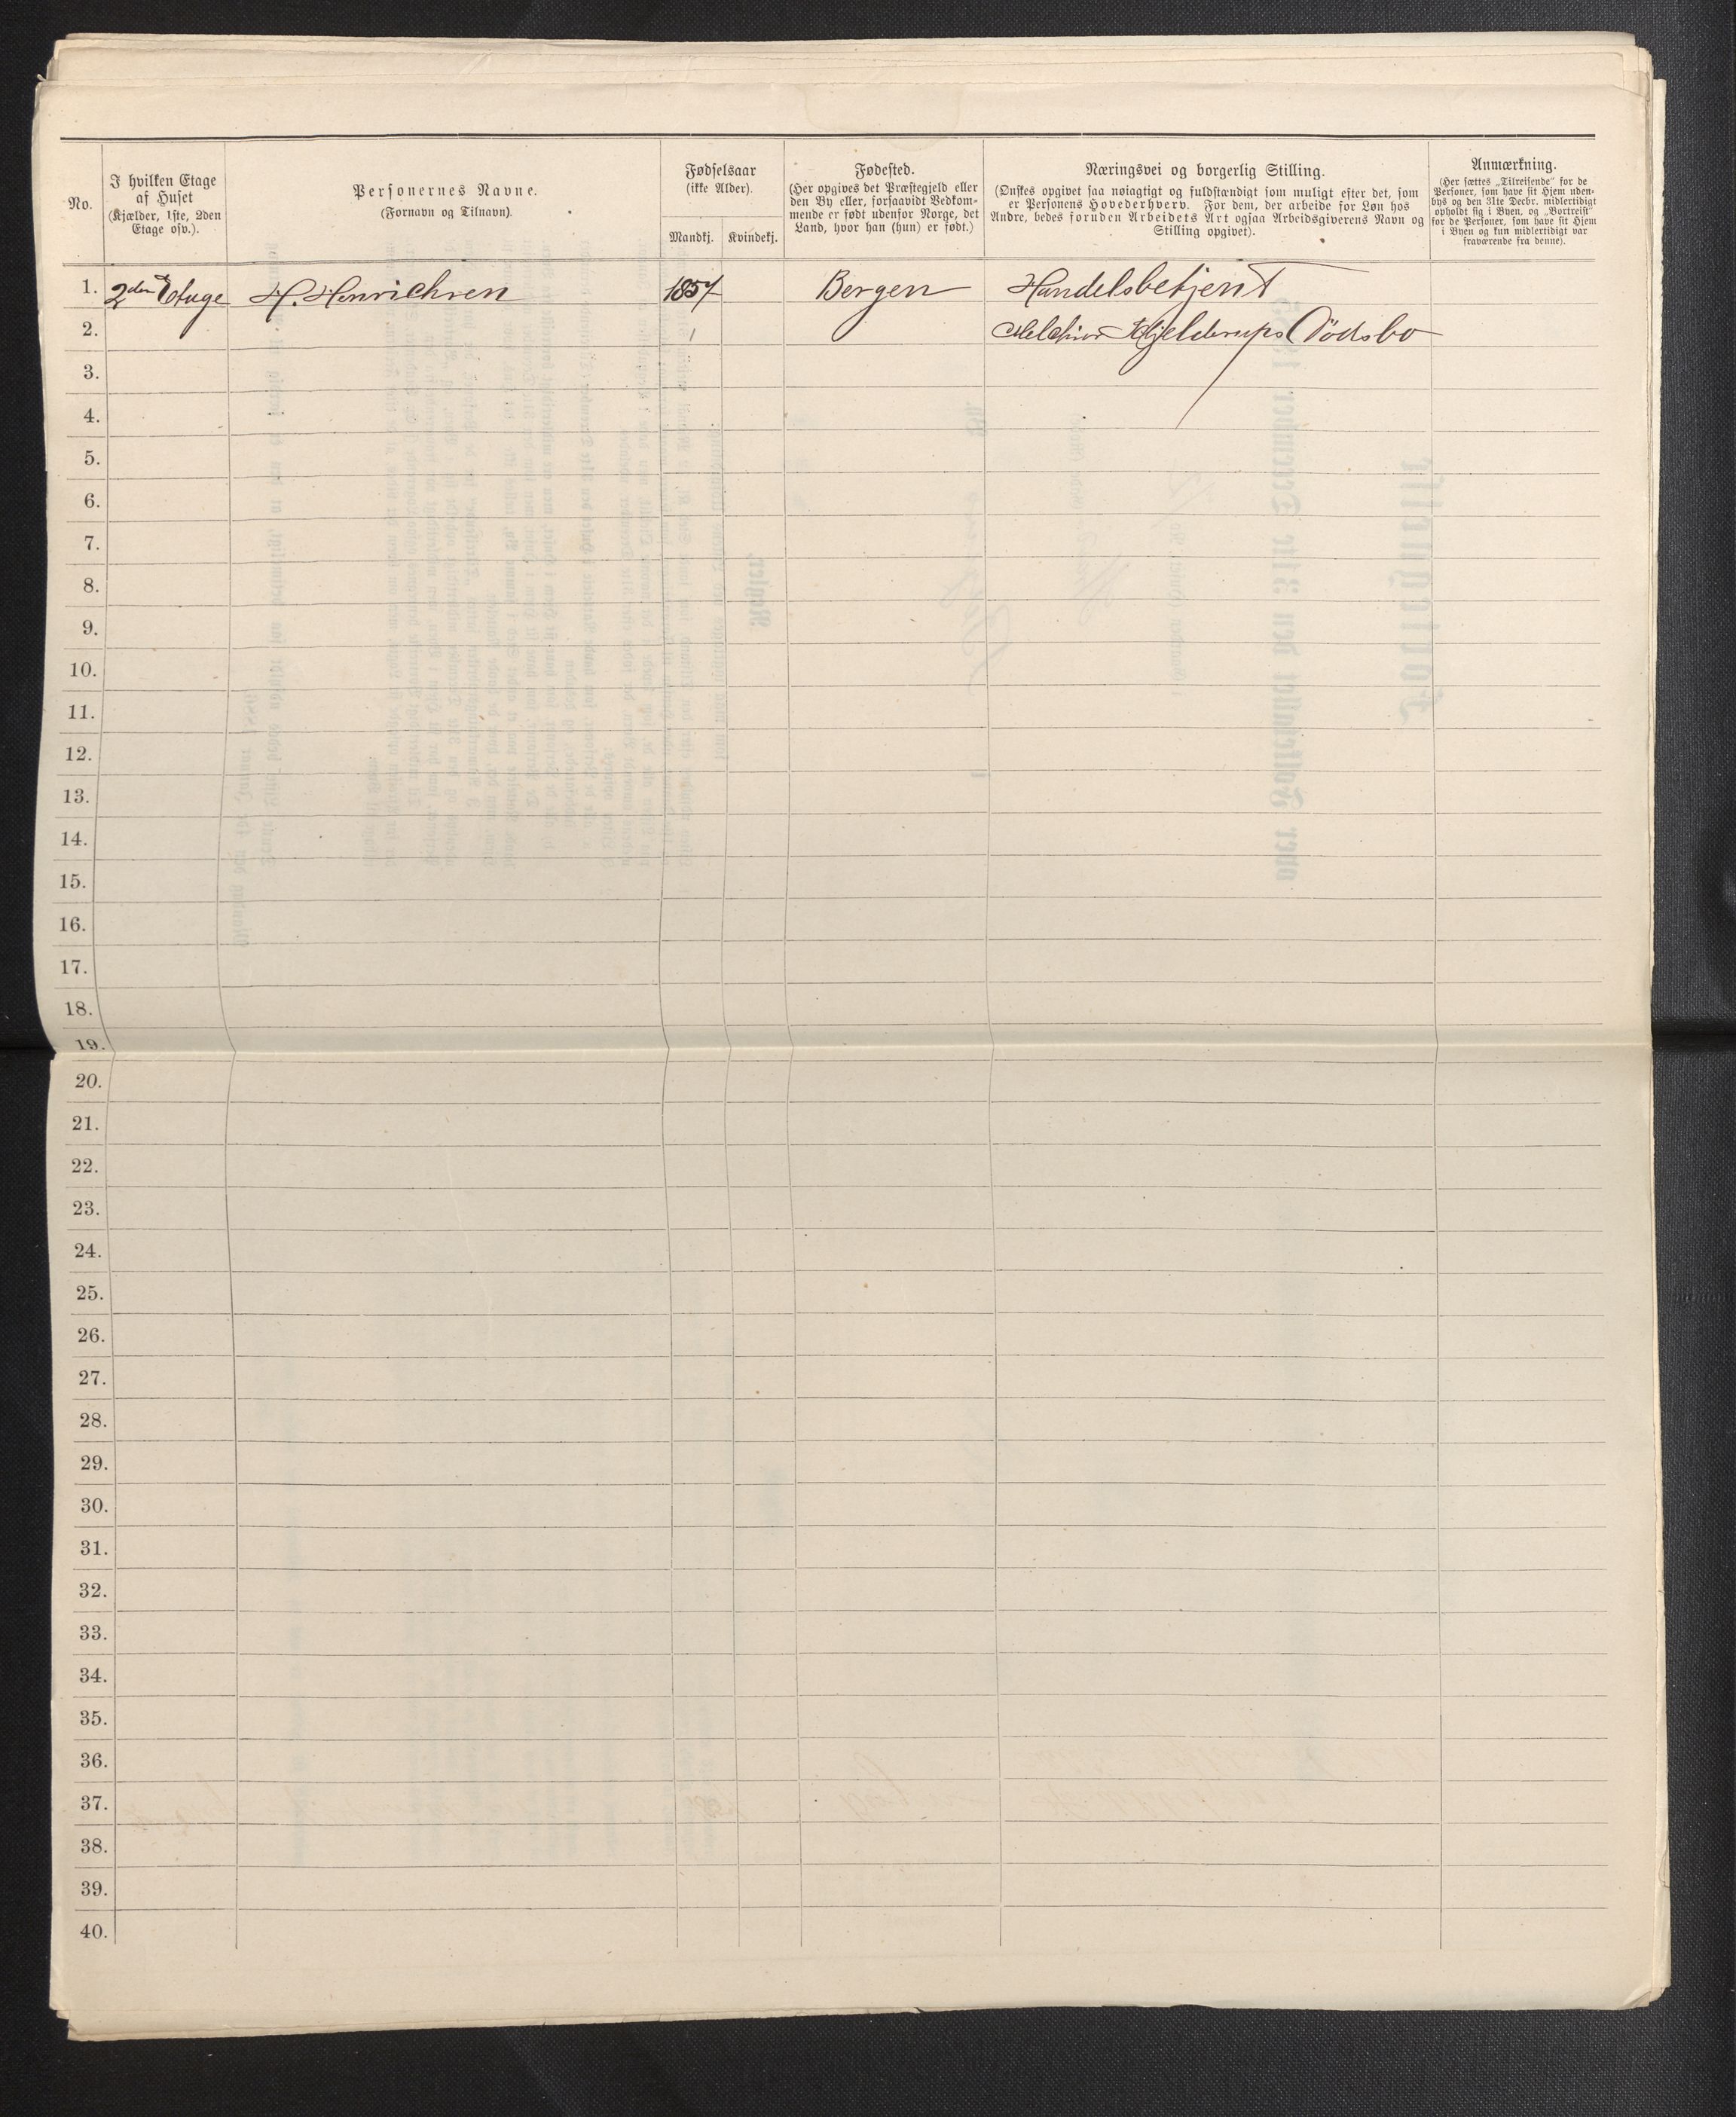 No.
I hvilken Etage
af Huset
(Kjælder, 1ste, 2den
Etage osv.).
Personernes Navne.
(Fornavn og Tilnavn).
Fødselsaar
(ikke Alder).
Mandkj. Kvindekj.
Fødested.
(Her opgives det Præstegjeld eller
den By eller, forsaavidt Vedkom-
mende er født udenfor Norge, det
Land, hvor han (hun) er født.)
Næringsvei og borgerlig Stilling.
(Ønskes opgivet saa nøiagtigt og fuldstændigt som muligt efter det, som
er Personens Hovederhverv. For dem, der arbeide for Løn hos
Andre, bedes foruden Arbeidets Art ogsaa Arbeidsgiverens Navn og
Stilling opgivet).
Anmærkning.
(Her sættes „Tilreisende" for de
Personer, som have sit Hjem uden-
bys og den 31te Decbr. midlertidigt
opholdt sig i Byen, og „Bortreist"
for de Personer, som have sit Hjem
i Byen og kun midlertidigt var
fraværende fra denne).
1. 2den Etage H. Henrichsen 1857 Bergen Handelsbetjent
2. Melchior Kjelderups Dødsbo
3.
4.
5.
6.
7.
8.
9.
10.
11.
12.
13.
14.
15.
16.
17.
18.
19.
20.
21.
22.
23.
24.
25.
26.
27.
28.
29.
30.
31.
32.
33.
34.
35.
36.
37.
38.
39.
40.